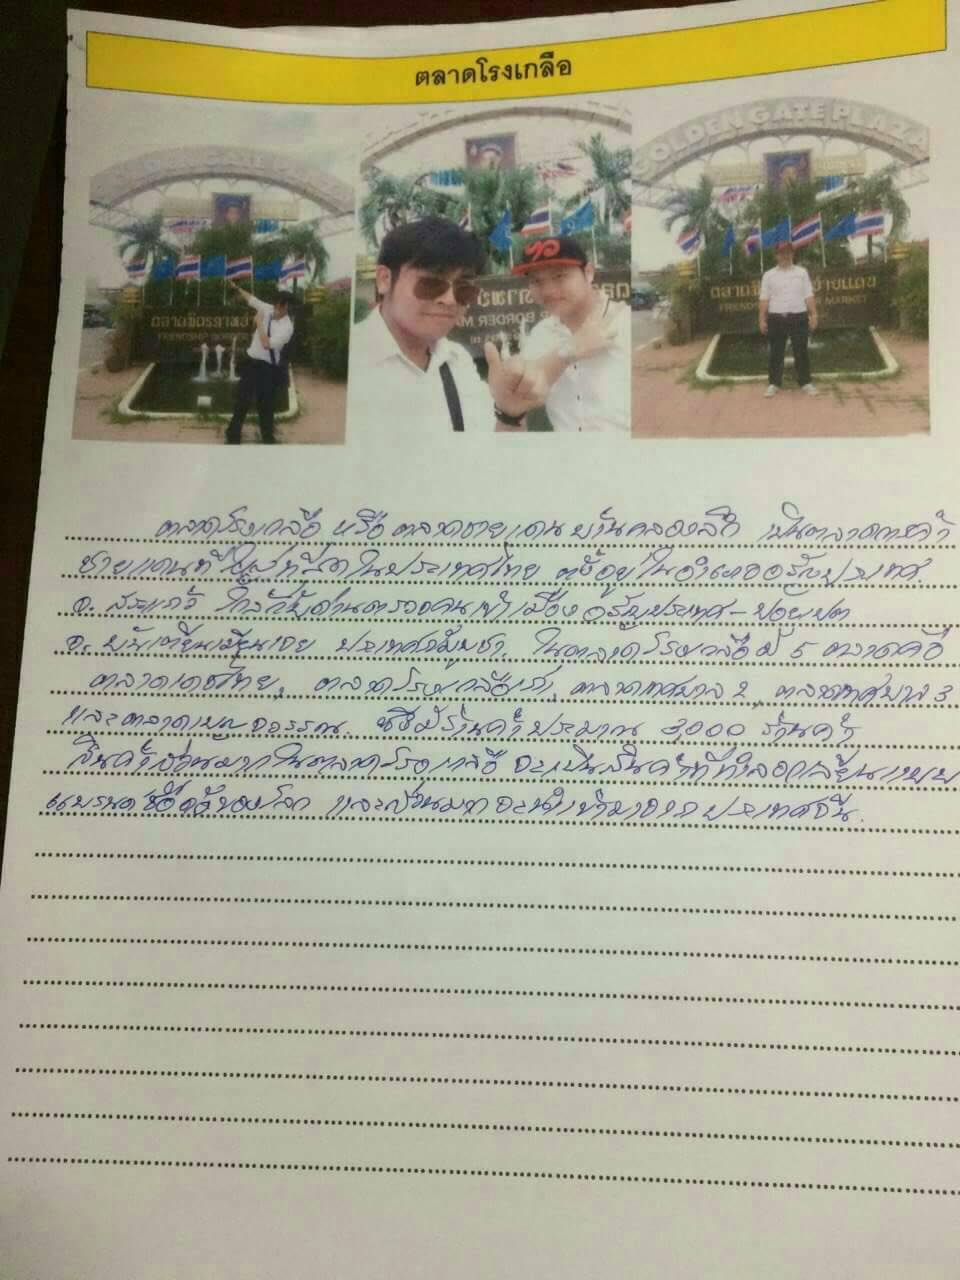 ตลาดโรงเกลือ
GOLDEN GATE PLAZA
ตลาดโรงเกลือ หรือ ตลาดชายแดนบ้านคลองลึก เป็นตลาดการค้า
ชายแดนที่ใหญ่ที่สุดในประเทศไทย ตั้งอยู่ในอำเภออรัญประเทศ
จ. สระแก้ว ใกล้กับด่านตรวจคนเข้าเมือง อรัญประเทศ - ปอยเปต
จ. บันเตียเมียนเจย ประเทศกัมพูชา. ในตลาดโรงเกลือมี 5 ตลาดคือ
ตลาดเดชไทย, ตลาดโรงเกลือเก่า, ตลาดเทศบาล 2, ตลาดเทศบาล 3
และตลาดเบญจวรรณ. ซึ่งมีร้านค้าประมาณ 3,000 ร้านค้า
สินค้าส่วนมากในตลาดโรงเกลือ จะเป็นสินค้าที่ทำลอกเลียนแบบ
แบรนด์ชื่อดังของโลก และส่วนมากจะนำเข้ามาจาก ประเทศจีน.